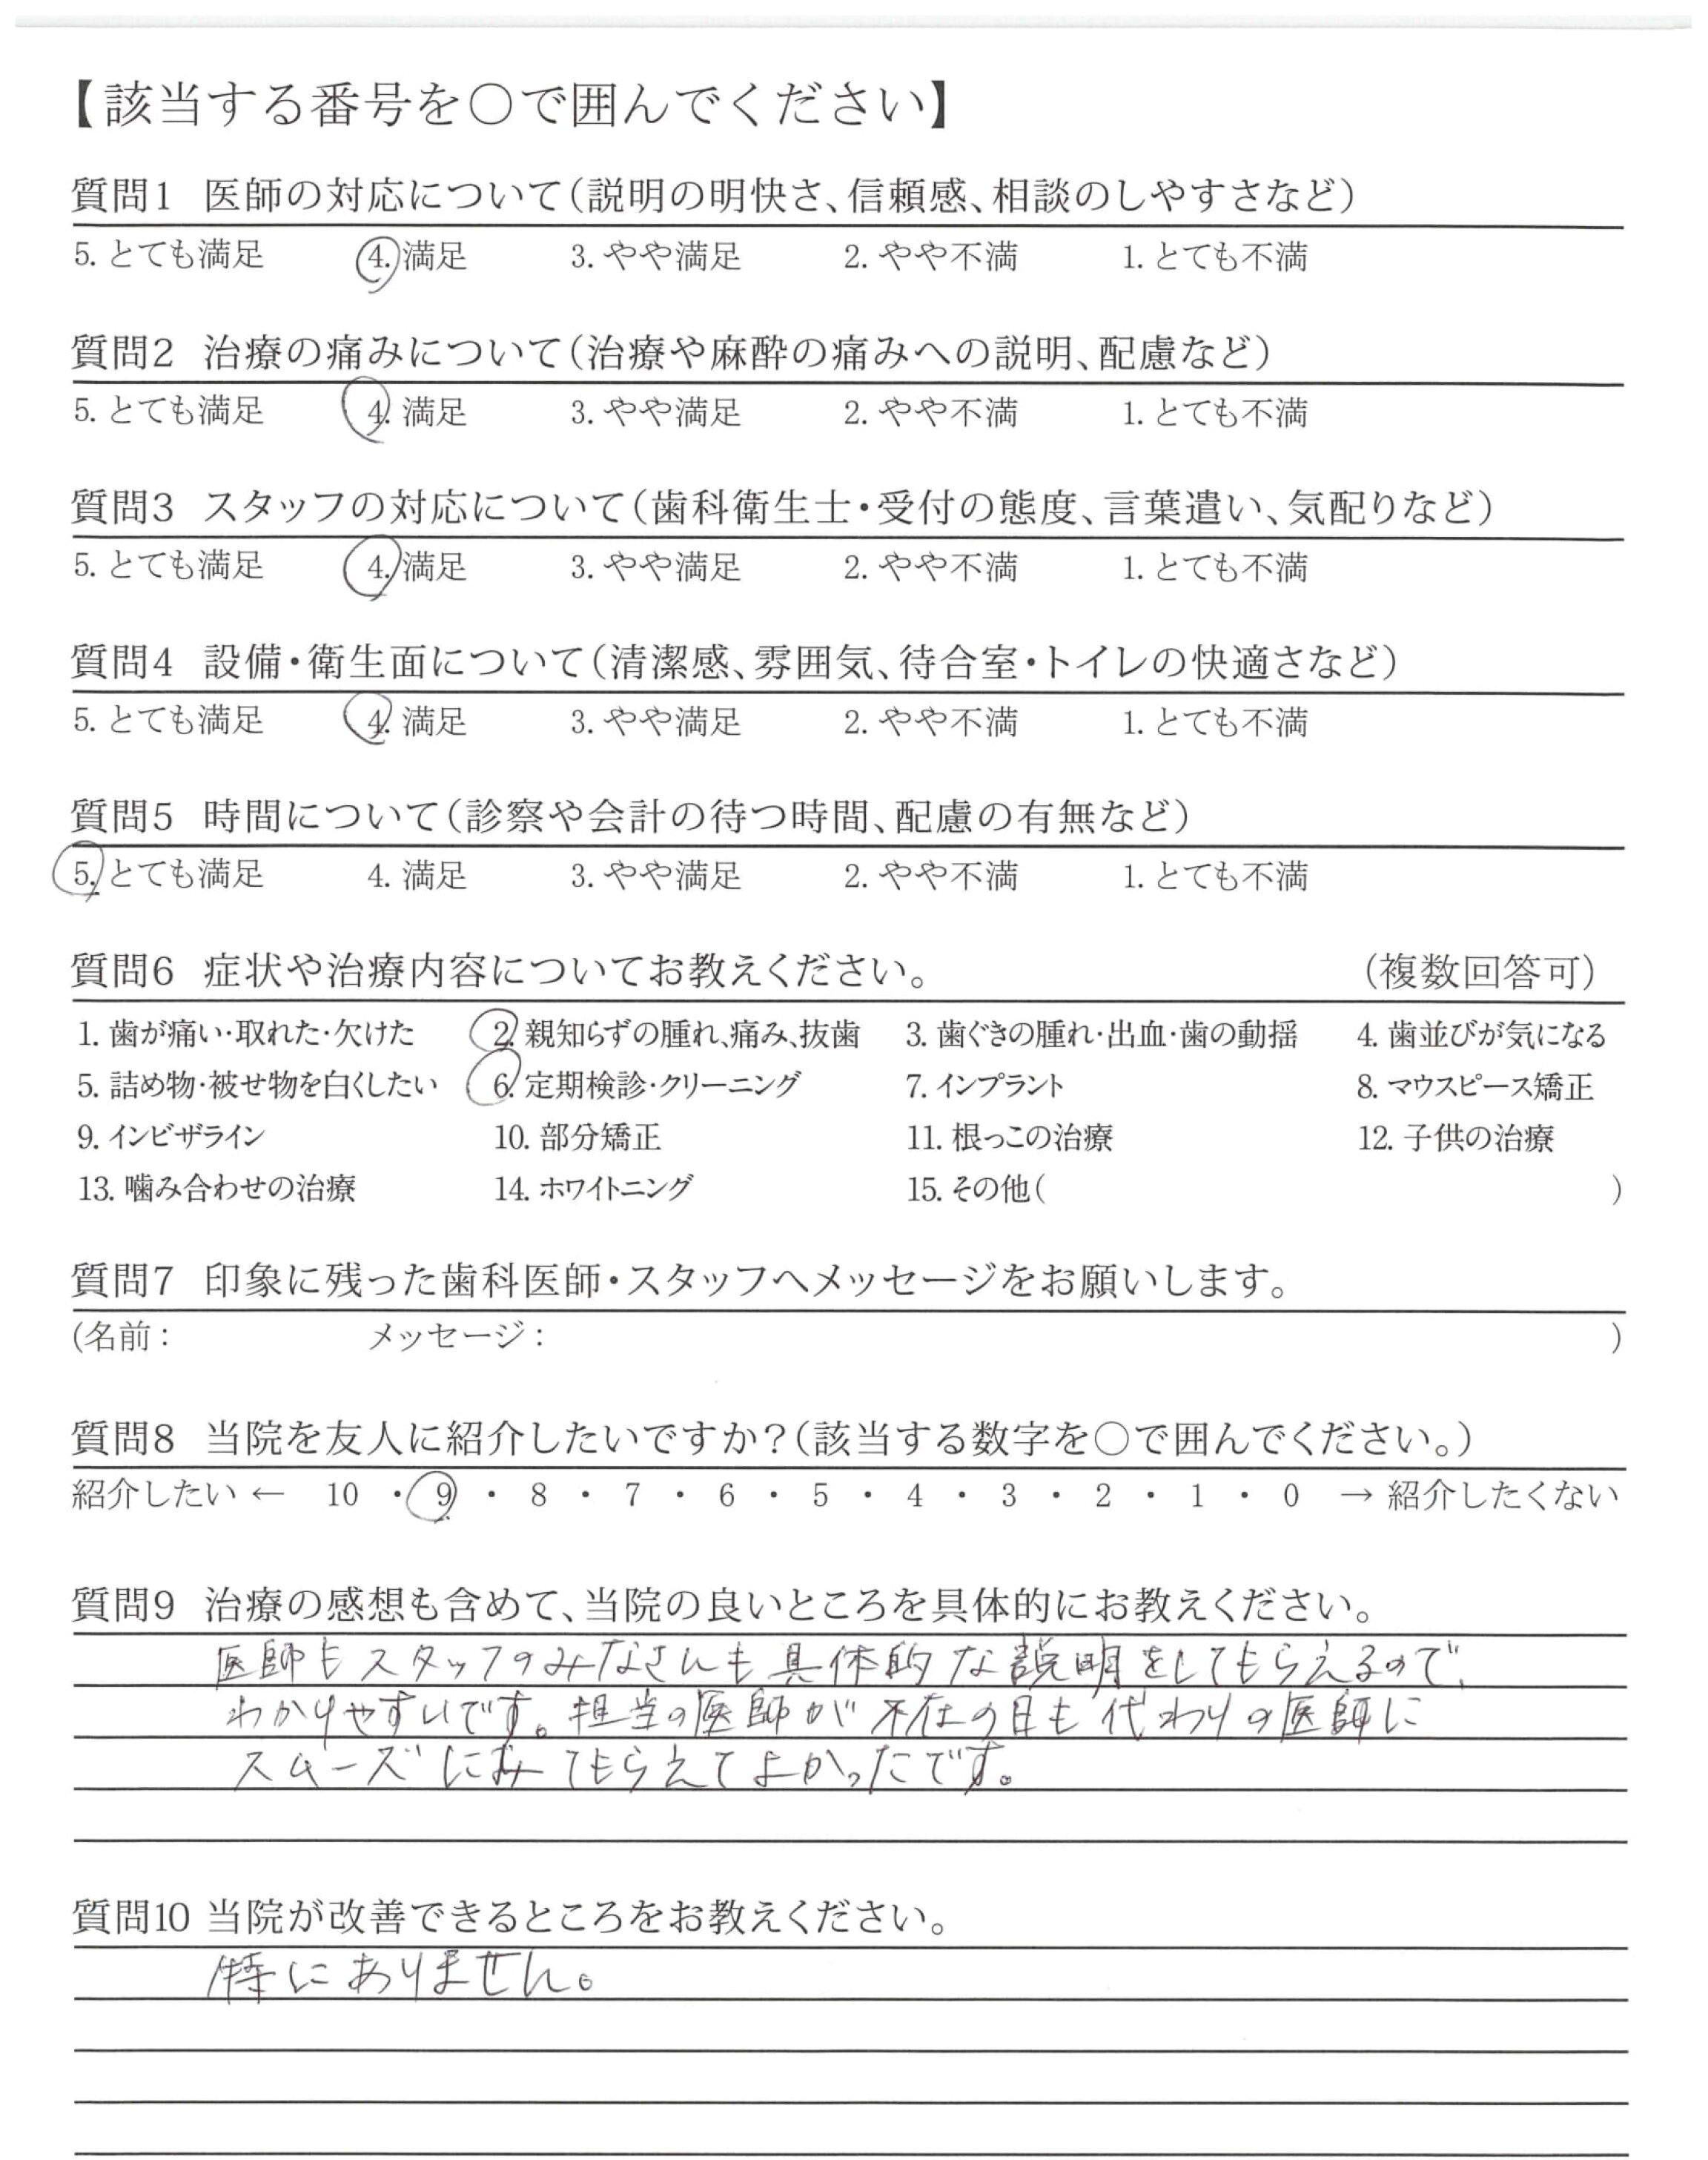 【該当する番号を○で囲んでください】
質問1 医師の対応について(説明の明快さ、信頼感、相談のしやすさなど)
5. とても満足 4. 満足 3. やや満足 2. やや不満 1. とても不満
質問2 治療の痛みについて(治療や麻酔の痛みへの説明、配慮など)
5. とても満足 4. 満足 3. やや満足 2. やや不満 1. とても不満
質問3 スタッフの対応について(歯科衛生士・受付の態度、言葉遣い、気配りなど)
5. とても満足 4. 満足 3. やや満足 2. やや不満 1. とても不満
質問4 設備・衛生面について(清潔感、雰囲気、待合室・トイレの快適さなど)
5. とても満足 4. 満足 3. やや満足 2. やや不満 1. とても不満
質問5 時間について(診察や会計の待つ時間、配慮の有無など)
5. とても満足 4. 満足 3. やや満足 2. やや不満 1. とても不満
質問6 症状や治療内容についてお教えください。 (複数回答可)
1. 歯が痛い・取れた・欠けた 2. 親知らずの腫れ、痛み、抜歯 3. 歯ぐきの腫れ・出血・歯の動揺 4. 歯並びが気になる
5. 詰め物・被せ物を白くしたい 6. 定期検診・クリーニング 7. インプラント 8. マウスピース矯正
9. インビザライン 10. 部分矯正 11. 根っこの治療 12. 子供の治療
13. 噛み合わせの治療 14. ホワイトニング 15. その他( )
質問7 印象に残った歯科医師・スタッフへメッセージをお願いします。
(名前: メッセージ: )
質問8 当院を友人に紹介したいですか?(該当する数字を○で囲んでください。)
紹介したい ← 10 ・ 9 ・ 8 ・ 7 ・ 6 ・ 5 ・ 4 ・ 3 ・ 2 ・ 1 ・ 0 → 紹介したくない
質問9 治療の感想も含めて、当院の良いところを具体的にお教えください。
医師もスタッフのみなさんも具体的な説明をしてもらえるので、
わかりやすいです。担当の医師が不在の日も代わりの医師に
スムーズにみてもらえてよかったです。
質問10 当院が改善できるところをお教えください。
特にありません。